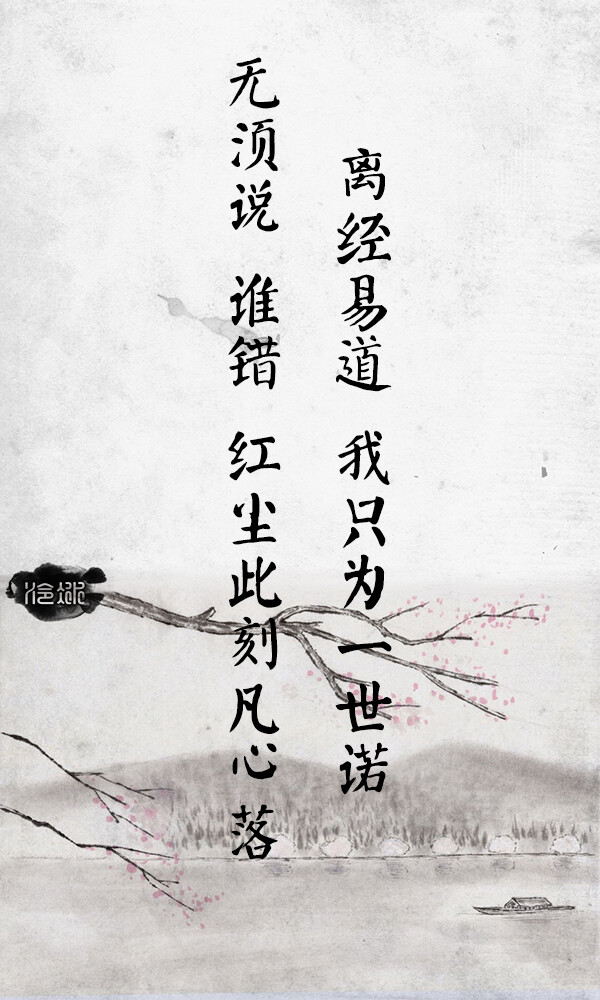 离经易道 我只为一世诺
无须说 谁错 红尘此刻凡心落